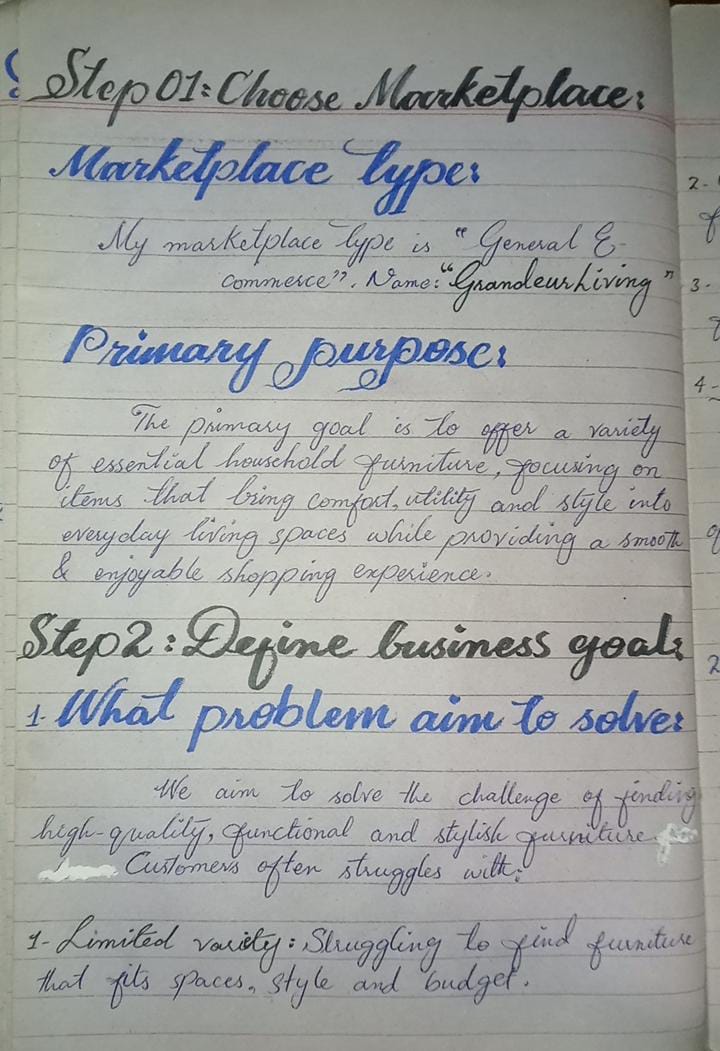 Step 01: Choose Marketplace:
Marketplace type:
My marketplace type is "General E-
commerce". Name: "GrandeurLiving"
Primary purpose:
The primary goal is to offer a variety
of essential household furniture, focusing on
items that bring comfort, utility and style into
everyday living spaces while providing a smooth
& enjoyable shopping experience.
Step 2: Define business goal:
1- What problem aim to solve:
We aim to solve the challenge of finding
high-quality, functional and stylish furniture
Customers often struggles with:
1- Limited variety: Struggling to find furniture
that fits spaces, style and budget.
2-
3-
4-
2